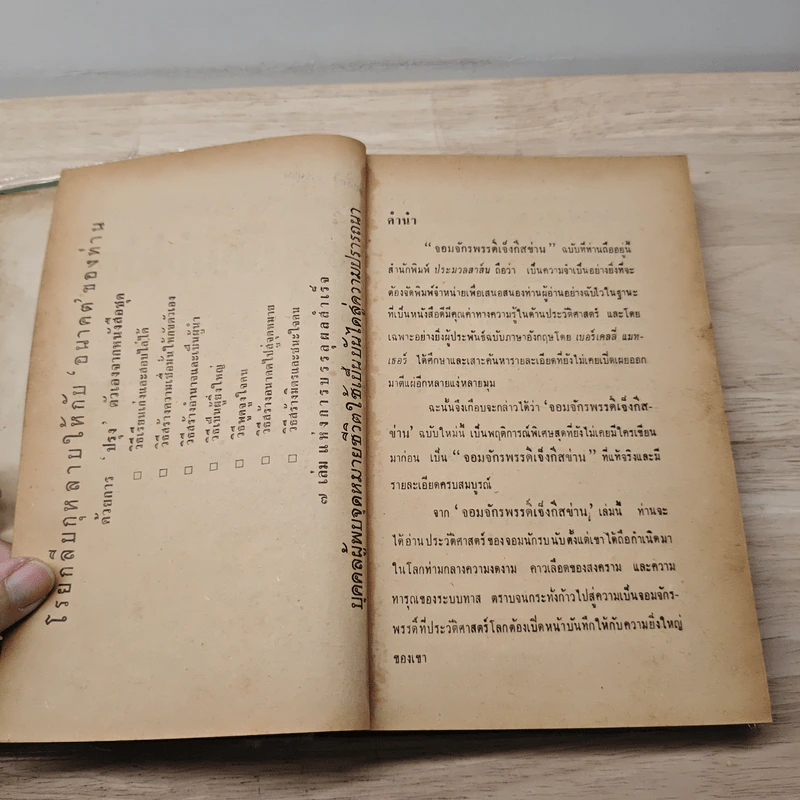 โรยกลีบกุหลาบให้กับ ‘อนาคต’ ของท่าน
ด้วยการ ‘ปรุง’ ตัวเองจากหนังสือชุด
□ วิธีเรียนเก่งและสอบไล่ได้
□ วิธีสร้างความเชื่อมั่นให้กับตัวเอง
□ วิธีสร้างอำนาจและเป็นผู้นำ
□ วิธีเป็นผู้ยิ่งใหญ่
□ วิธีพูดจูงใจคน
□ วิธีสร้างอนาคตไปสู่จุดหมาย
□ วิธีสร้างมิตรและชนะใจคน
๗ เล่ม แห่งการบรรลุผลสำเร็จ
บุคคลผู้พบจุดหมายชีวิตใช้เป็นบันไดสู่ความปรารถนา
คำนำ
“ จอมจักรพรรดิเจ็งกิสข่าน ” ฉบับที่ท่านถืออยู่นี้
สำนักพิมพ์ ประมวลสาส์น ถือว่า เป็นความจำเป็นอย่างยิ่งที่จะ
ต้องจัดพิมพ์จำหน่ายเพื่อเสนอสนองท่านผู้อ่านอย่างฉับไวในฐานะ
ที่เป็นหนังสือดีมีคุณค่าทางความรู้ในด้านประวัติศาสตร์ และโดย
เฉพาะอย่างยิ่งผู้ประพันธ์ฉบับภาษาอังกฤษโดย เบอร์เคลลี่ แมท-
เธอร์ ได้ศึกษาและเสาะค้นหารายละเอียดที่ยังไม่เคยเปิดเผยออก
มาตีแผ่อีกหลายแง่หลายมุม
ฉะนั้นจึงเกือบจะกล่าวได้ว่า ‘จอมจักรพรรดิเจ็งกิส-
ข่าน’ ฉบับใหม่นี้ เป็นพฤติการณ์พิเศษสุดที่ยังไม่เคยมีใครเขียน
มาก่อน เป็น “ จอมจักรพรรดิเจ็งกิสข่าน ” ที่แท้จริงและมี
รายละเอียดครบสมบูรณ์
จาก ‘ จอมจักรพรรดิเจ็งกิสข่าน’ เล่มนี้ ท่านจะ
ได้อ่านประวัติศาสตร์ของจอมนักรบนับตั้งแต่เขาได้ถือกำเนิดมา
ในโลกท่ามกลางความงดงาม คาวเลือดของสงคราม และความ
ทารุณของระบบทาส ตราบจนกระทั่งก้าวไปสู่ความเป็นจอมจักร-
พรรดิ์ที่ประวัติศาสตร์โลกต้องเปิดหน้าบันทึกให้กับความยิ่งใหญ่
ของเขา